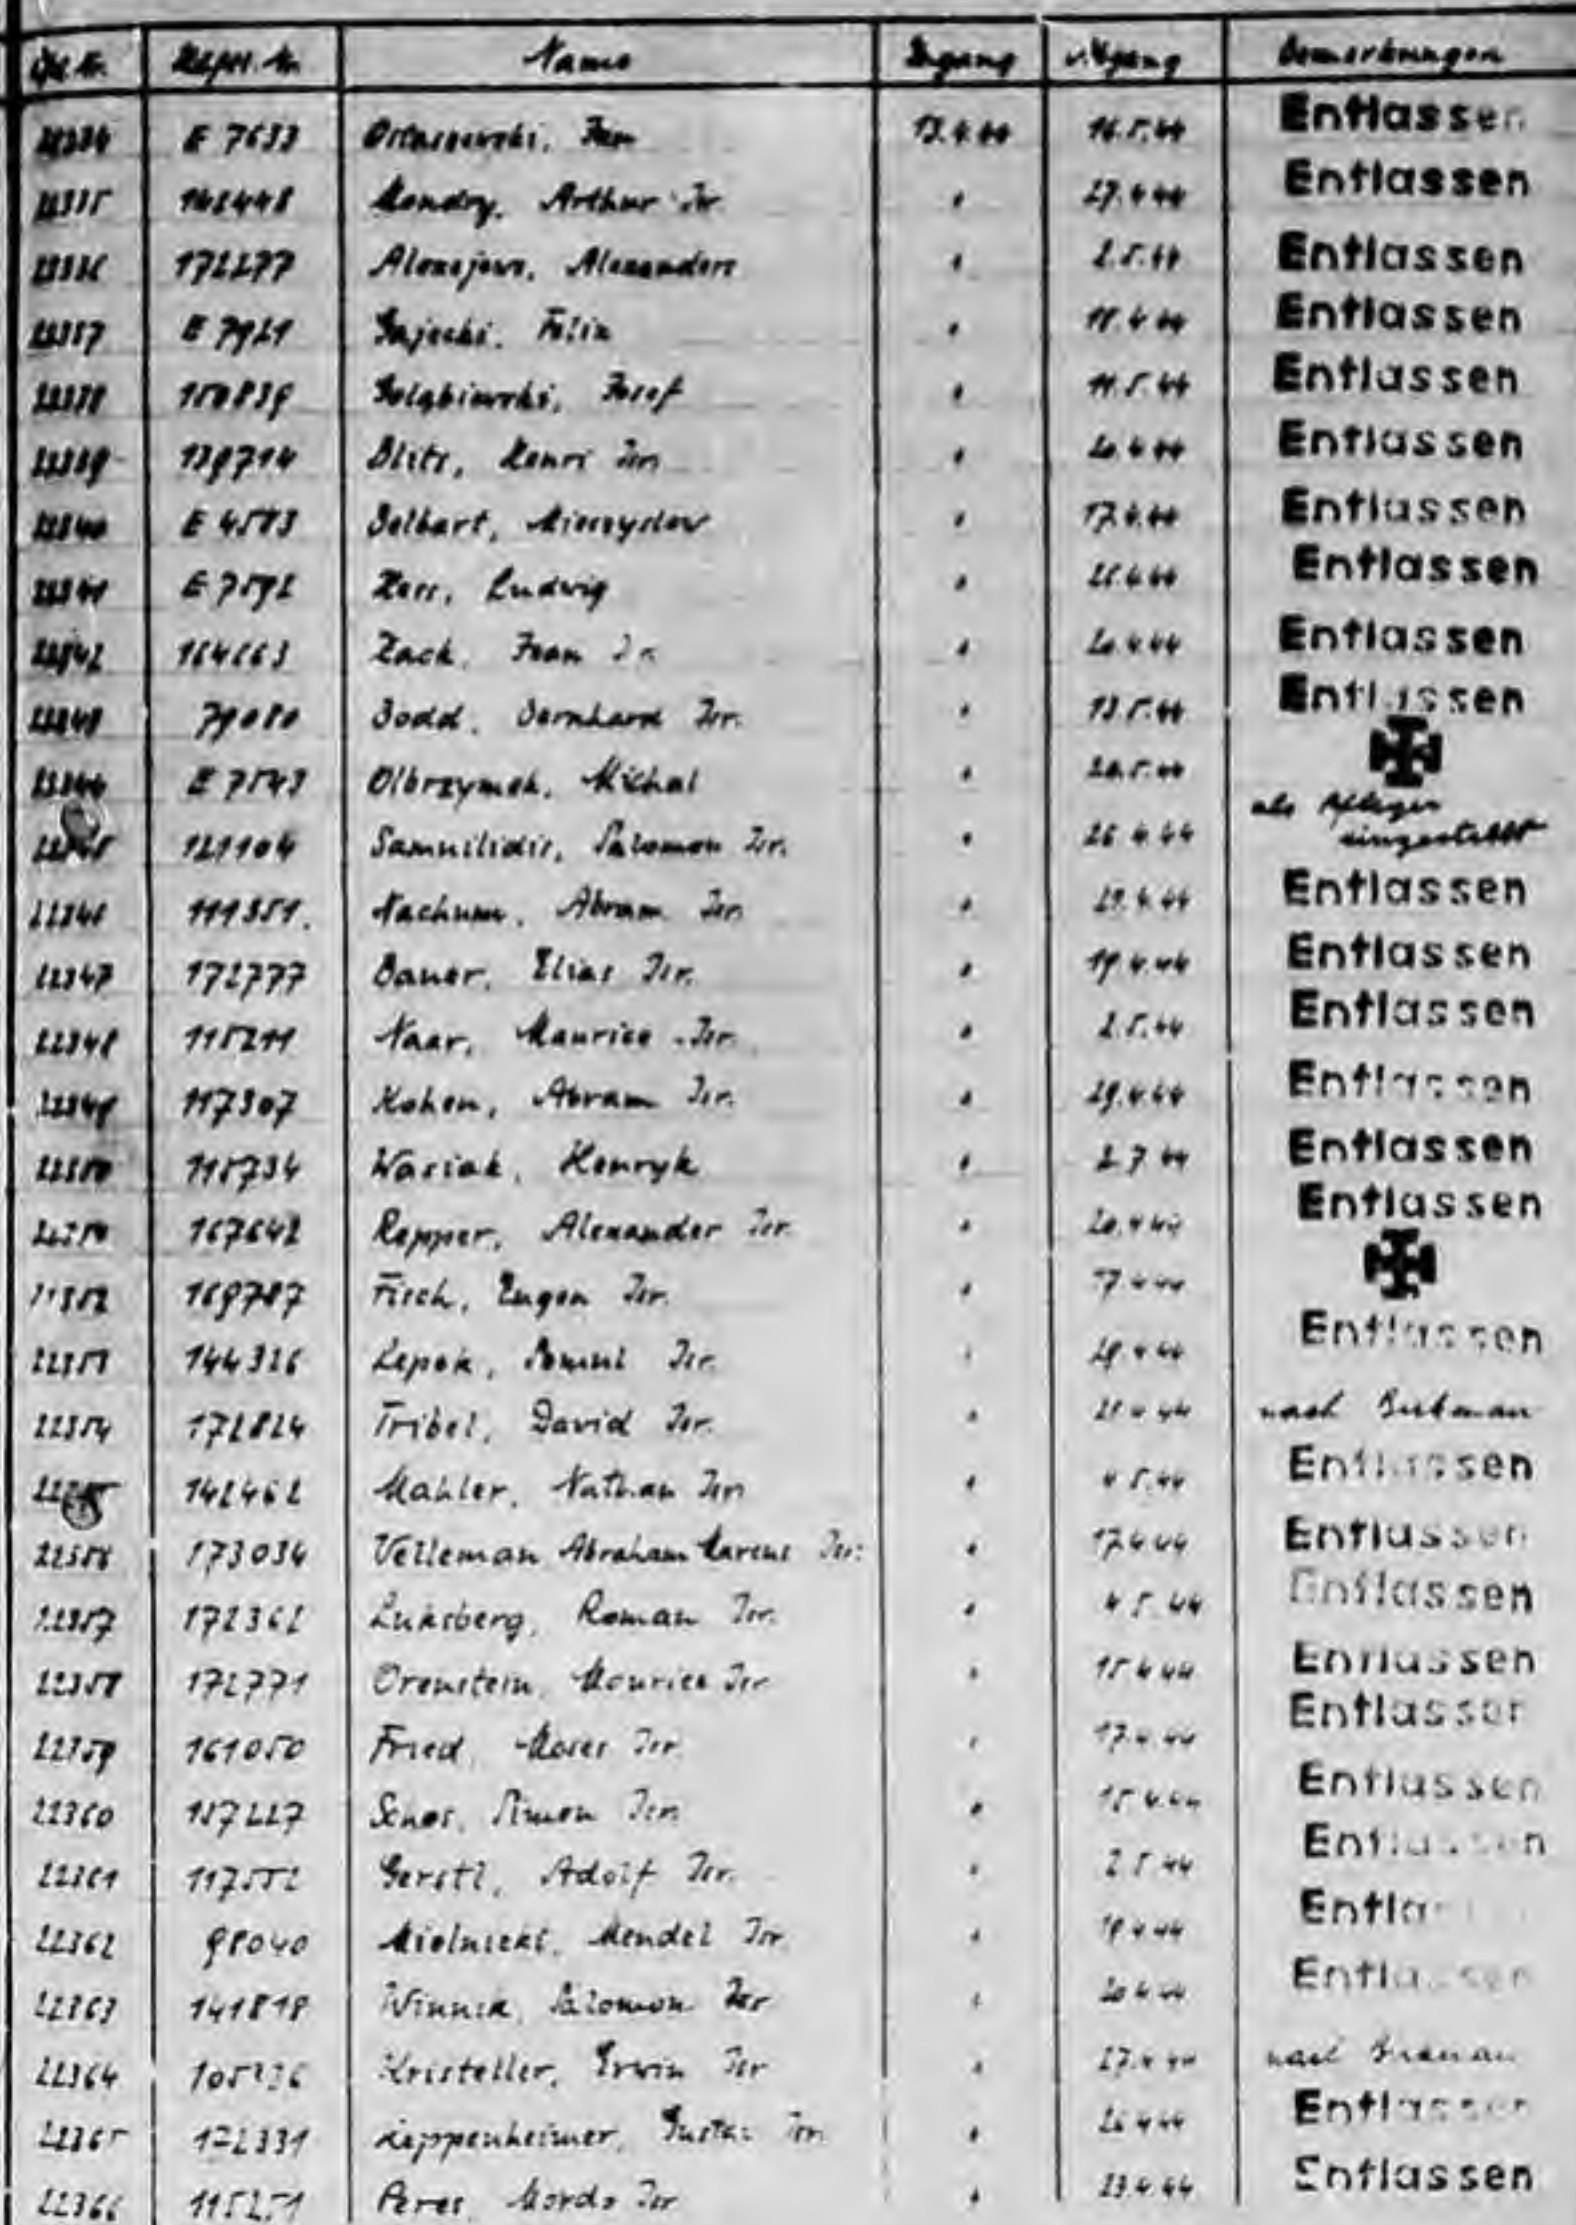 Name Zugang Abgang Bemerkungen
22334 E 7633 Jan 13.4.44 16.5.44 Entlassen
22335 Mondry, Arthur Isr. " 27.4.44 Entlassen
22336 172277 " 2.5.44 Entlassen
22337 E 7921 Gajecki, Felix " 18.4.44 Entlassen
22338 150839 Goląbiewski, Josef " 11.5.44 Entlassen
22339 139714 Blitz, Henri Isr. " 20.4.44 Entlassen
22340 E 4583 Mieczyslaw " 17.4.44 Entlassen
22341 E 7592 Ludwig " Entlassen
22342 " 20.4.44 Entlassen
22343 79080 Dodd, Bernhard Isr. " 13.5.44 Entlassen
22344 E 7543 Olbrzymek, Michal " 20.5.44
22345 121104 Samuilidis, Salomon Isr. " 26.4.44 als Pfleger
eingestellt
22346 111351. Nachum, Abram Isr. " 29.4.44 Entlassen
22347 172777 Bauer, Elias Isr. " 19.4.44 Entlassen
22348 115211 Naar, Maurice Isr. " 2.5.44 Entlassen
22349 117307 Kohen, Abram Isr. " 29.4.44 Entlassen
22350 115734 Wasiak, Henryk " 2.7.44 Entlassen
22351 167642 Repper, Alexander Isr. " 20.4.44 Entlassen
22352 169787 Fisch, Eugen Isr. " 17.4.44
22353 144326 Lepek, Isr. " 29.4.44 Entlassen
22354 172824 Tribel, David Isr. " nach Birkenau
22355 142462 Mahler, Nathan Isr. " 4.5.44 Entlassen
22356 173034 Velleman Abraham Marcus Isr. " 17.4.44 Entlassen
22357 172362 Luksberg, Roman Isr. " 4.5.44 Entlassen
22358 172771 Orenstein, Maurice Isr. " 15.4.44 Entlassen
22359 161050 Fried, Moses Isr. " 17.4.44 Entlassen
22360 157227 Simon Isr. " 15.4.44 Entlassen
22361 117552 Gerstl, Adolf Isr. " 2.5.44 Entlassen
22362 98040 Mielnicki, Mendel Isr. " 19.4.44 Entlassen
22363 141818 Winnik, Salomon Isr. " 20.4.44 Entlassen
22364 Kristeller, Erwin Isr. " 27.4.44 nach Birkenau
22365 172331 Gustav Isr. " 26.4.44 Entlassen
22366 115251 Peres, Mordo Isr. " 23.4.44 Entlassen